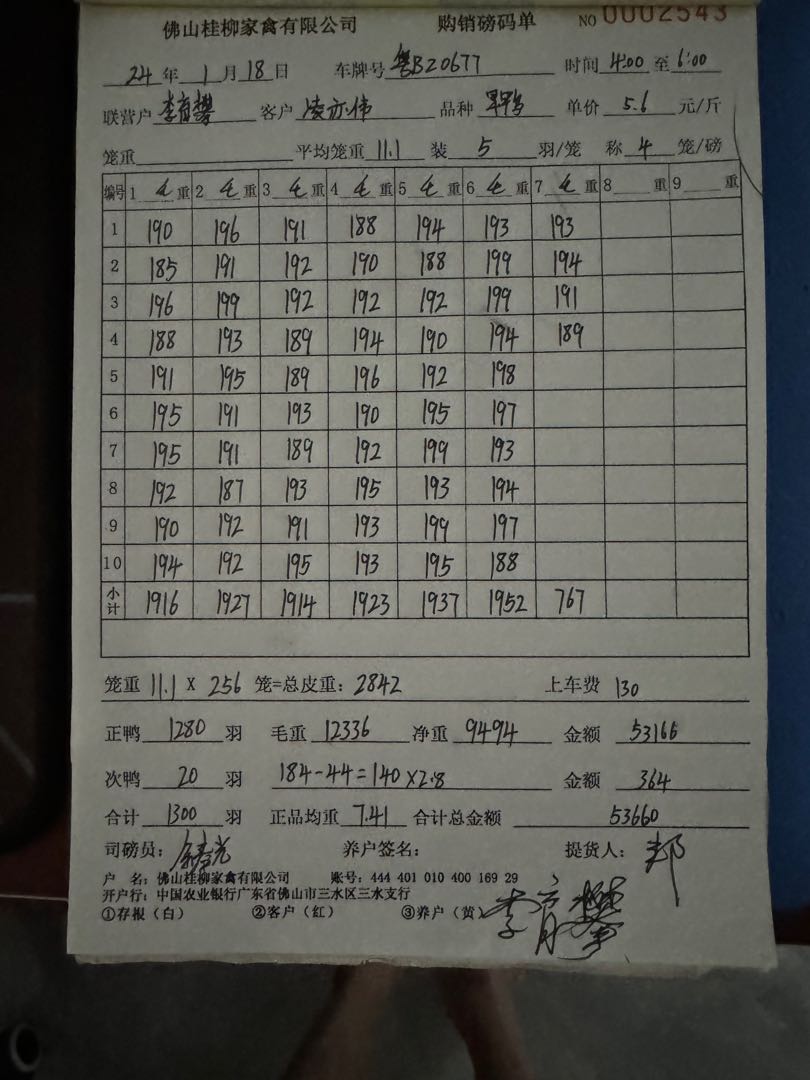 佛山桂柳家禽有限公司 购销磅码单 NO 0002543
24 年 1 月 18 日 车牌号 粤B20677 时间 4:00 至 6:00
联营户 李育攀 客户 凌亦伟 品种 旱鸭 单价 5.6 元/斤
笼重 平均笼重 11.1 装 5 羽/笼 称 4 笼/磅
编号 1 毛 重 2 毛 重 3 毛 重 4 毛 重 5 毛 重 6 毛 重 7 毛 重 8 重 9 重
1 190 196 191 188 194 193 193
2 185 191 192 190 188 199 194
3 196 199 192 192 192 199 191
4 188 193 189 194 190 194 189
5 191 195 189 196 192 198
6 195 191 193 190 195 197
7 195 191 189 192 199 193
8 192 187 193 195 193 194
9 190 192 191 193 199 197
10 194 192 195 193 195 188
小计 1916 1927 1914 1923 1937 1952 767
笼重 11.1 X 256 笼=总皮重: 2842 上车费 130
正鸭 1280 羽 毛重 12336 净重 9494 金额 53166
次鸭 20 羽 184-44=140×2.8 金额 364
合计 1300 羽 正品均重 7.41 合计总金额 53660
司磅员: 养户签名: 提货人: 邦
户 名: 佛山桂柳家禽有限公司 账号: 444 401 010 400 169 29
开户行: 中国农业银行广东省佛山市三水区三水支行
①存根（白） ②客户（红） ③养户（黄） 李育攀